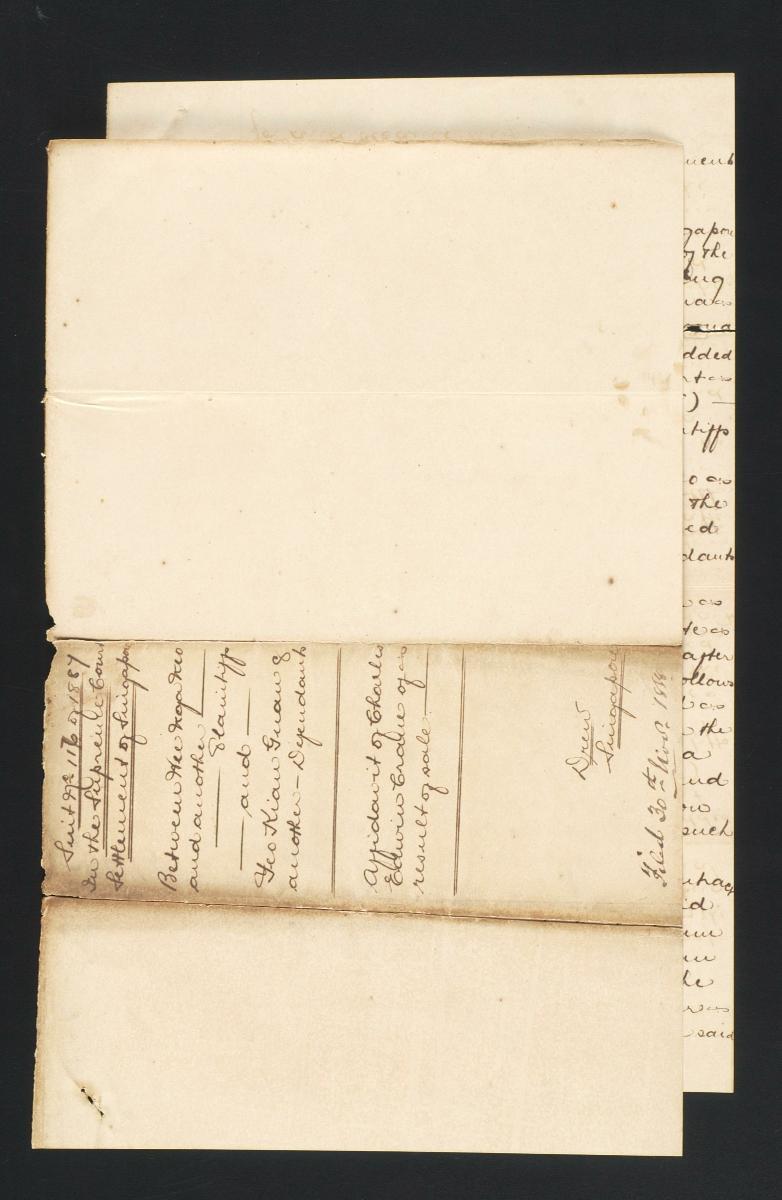 Suit No 116 of 1887
In the Supreme Court
Settlement of Singapore
Between Wee
and another
Plaintiffs
and
Teo Kian Guan &
another - Defendants
Affidavit of Charles
Edwin Crane of as
result of sale.
Drew
Singapore
Filed 30th Novr. 1888
ment
gapore
by the
ing
was
dded
nt as
")
ntiffs
o as
the
ed
dants
as
te as
after
ollows
as
the
a
nd
such
id
um
he
said